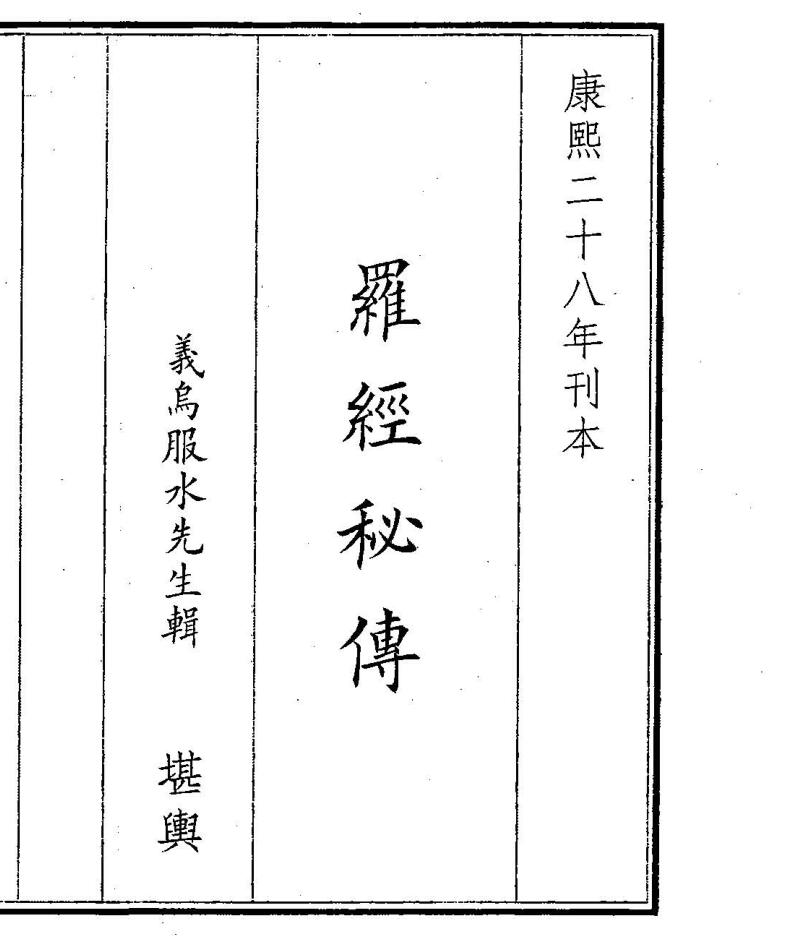 康熙二十八年刊本
羅經秘傳
義烏服水先生輯　堪輿